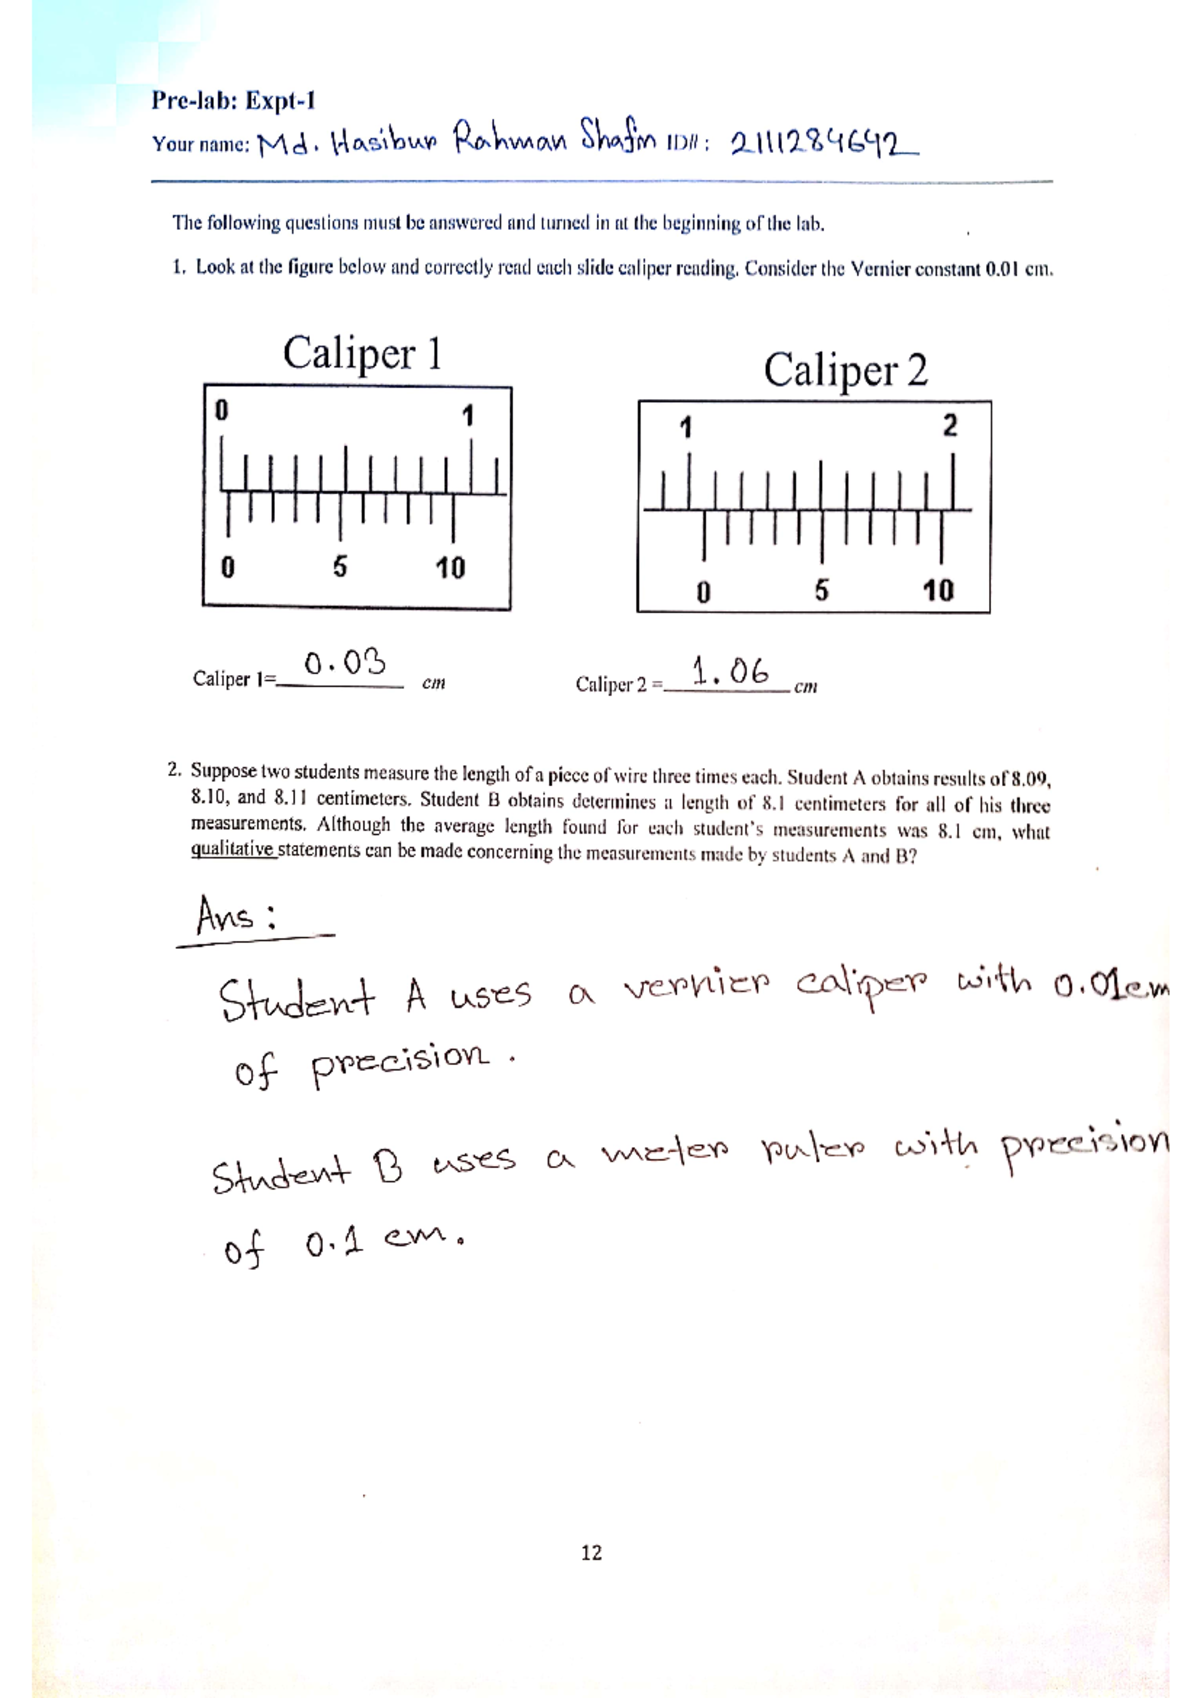 Pre-lab: Expt-1
Your name: Md. Hasibur Rahman Shafin ID#: 2111284642
The following questions must be answered and turned in at the beginning of the lab.
1. Look at the figure below and correctly read each slide caliper reading. Consider the Vernier constant 0.01 cm.
Caliper 1 Caliper 2
0 1 1 2
0 5 10 0 5 10
Caliper 1= 0.03 cm Caliper 2 = 1.06 cm
2. Suppose two students measure the length of a piece of wire three times each. Student A obtains results of 8.09,
8.10, and 8.11 centimeters. Student B obtains determines a length of 8.1 centimeters for all of his three
measurements. Although the average length found for each student's measurements was 8.1 cm, what
qualitative statements can be made concerning the measurements made by students A and B?
Ans:
Student A uses a vernier caliper with 0.01cm
of precision.
Student B uses a meter ruler with precision
of 0.1 cm.
12